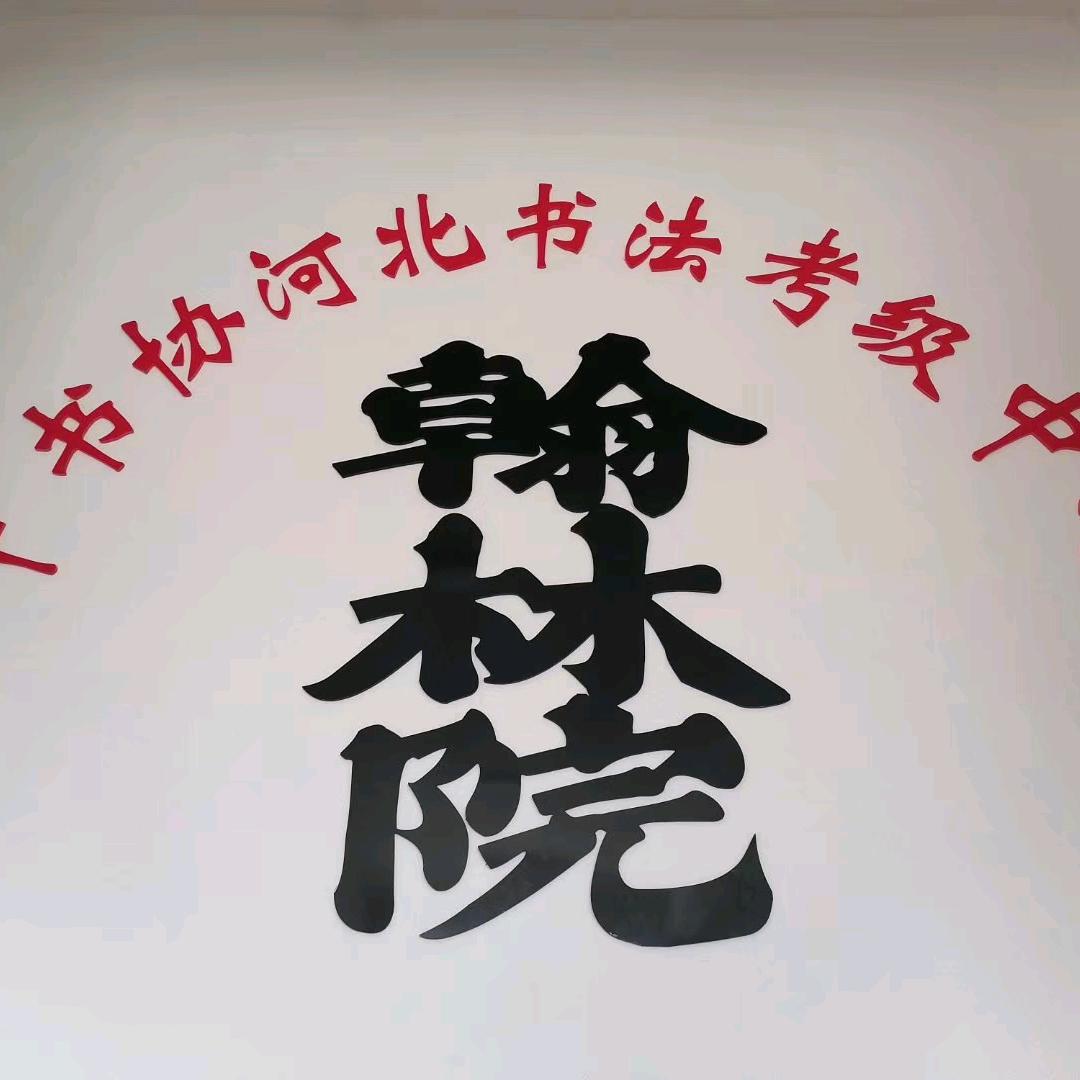 书协河北书法考级中
翰林院